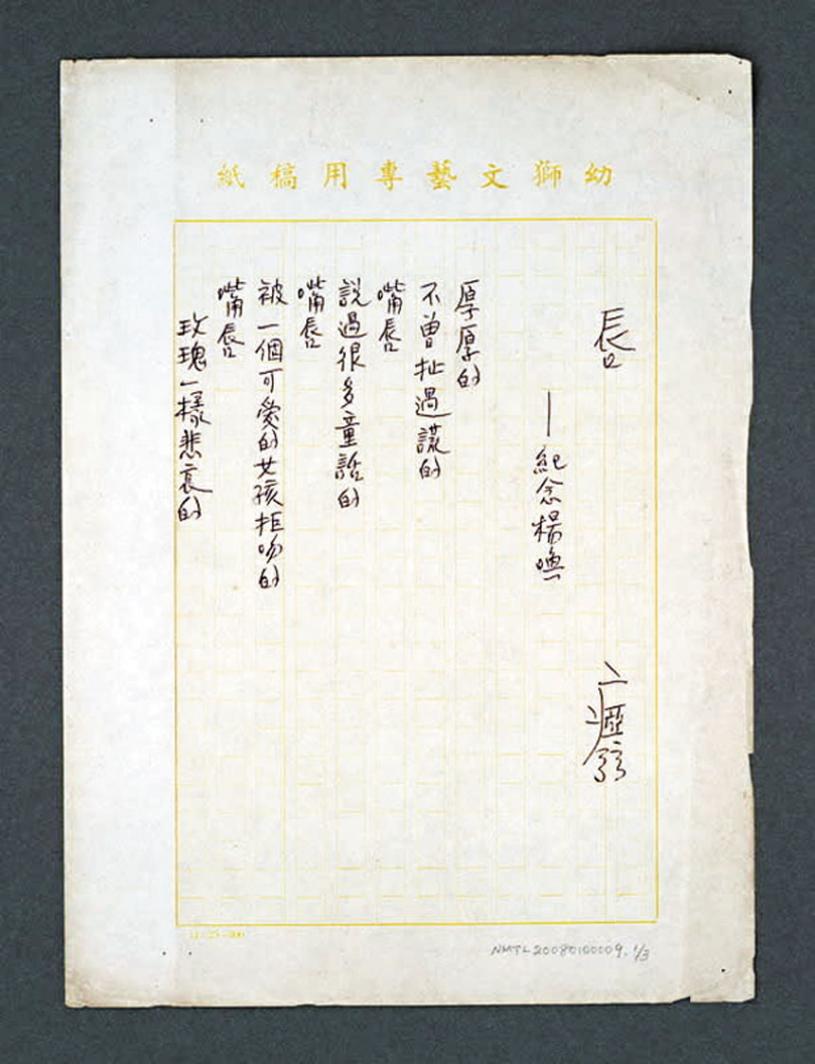 幼獅文藝專用稿紙
唇
瘂弦
—紀念楊喚
厚厚的
不曾扯過謊的
嘴唇
說過很多童話的
嘴唇
被一個可愛的女孩拒吻的
嘴唇
玫瑰一樣悲哀的
NMTL20080100009. 1/3